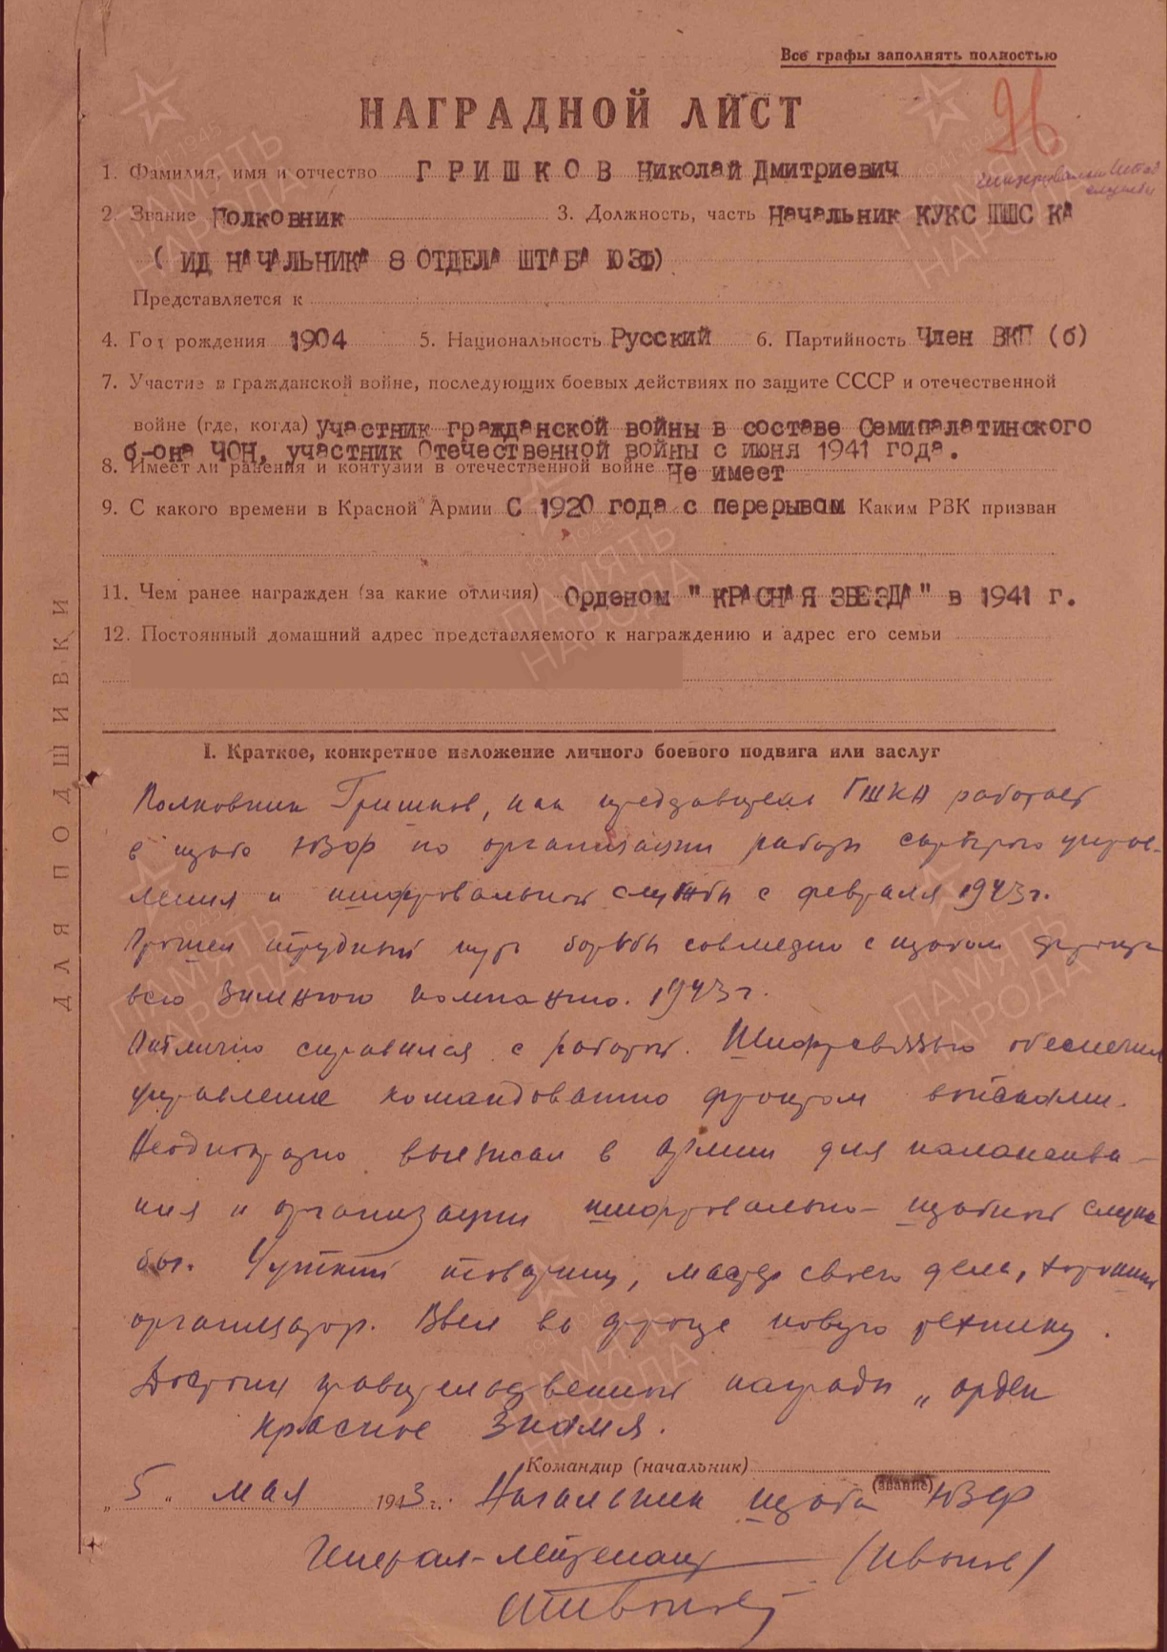 Все графы заполнять полностью
НАГРАДНОЙ ЛИСТ
96
1. Фамилия, имя и отчество ГРИШКОВ Николай Дмитриевич
2. Звание Полковник 3. Должность, часть Начальник КУКС ПШС КА
( ИД НАЧАЛЬНИКА 8 ОТДЕЛА ШТАБА ЮЗФ)
Представляется к
4. Год рождения 1904 5. Национальность Русский 6. Партийность Член ВКП (б)
7. Участие в гражданской войне, последующих боевых действиях по защите СССР и отечественной
войне (где, когда) участник гражданской войны в составе Семипалатинского
б-она ЧОН, участник Отечественной войны с июня 1941 года.
8. Имеет ли ранения и контузии в отечественной войне Не имеет
9. С какого времени в Красной Армии С 1920 года с перерывом Каким РВК призван
11. Чем ранее награжден (за какие отличия) Орденом "КРАСНАЯ ЗВЕЗДА" в 1941 г.
12. Постоянный домашний адрес представляемого к награждению и адрес его семьи
ДЛЯ ПОДШИВКИ
I. Краткое, конкретное изложение личного боевого подвига или заслуг
Полковник Гришков, как представитель ГШКА работает
в штабе ЮЗФ по организации работы скрытого управ-
ления и шифровальной службы с февраля 1943 г.
Прошел трудный путь борьбы совместно с штабом фронта
всю зимнюю кампанию 1943 г.
Отлично справился с работой. Шифрсвязью обеспечил
управление командованию фронтом войсками.
Неоднократно выезжал в армии для налажива-
ния и организации шифровально-штабной служ
бы. Чуткий товарищ, мастер своего дела, хороший
организатор. Ввел во фронте новую технику.
Достоин правительственной награды „ орден
Красное Знамя.
Командир (начальник)
(звание)
„ 5 " мая 1943 г. Начальник штаба ЮЗФ
Генерал-лейтенант (Иванов)